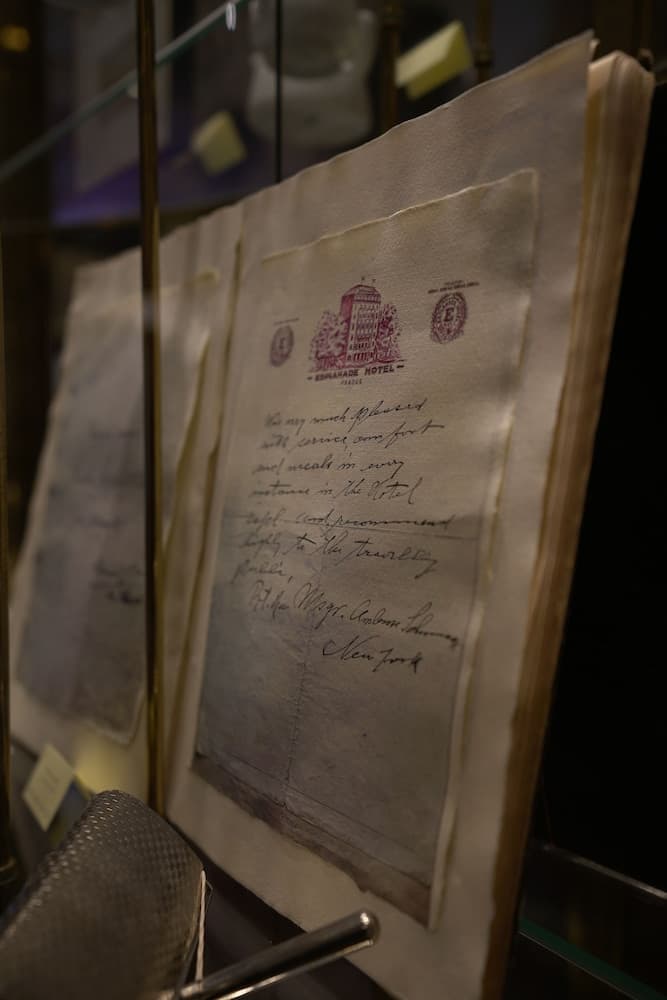 E
E
ESPLANADE HOTEL
PRAGUE
Was very much pleased
with service, comfort
and meals in every
instance in the Hotel
and recommend
highly to the traveling
public,
Rt. Rev. Msgr. Ambrose
New York